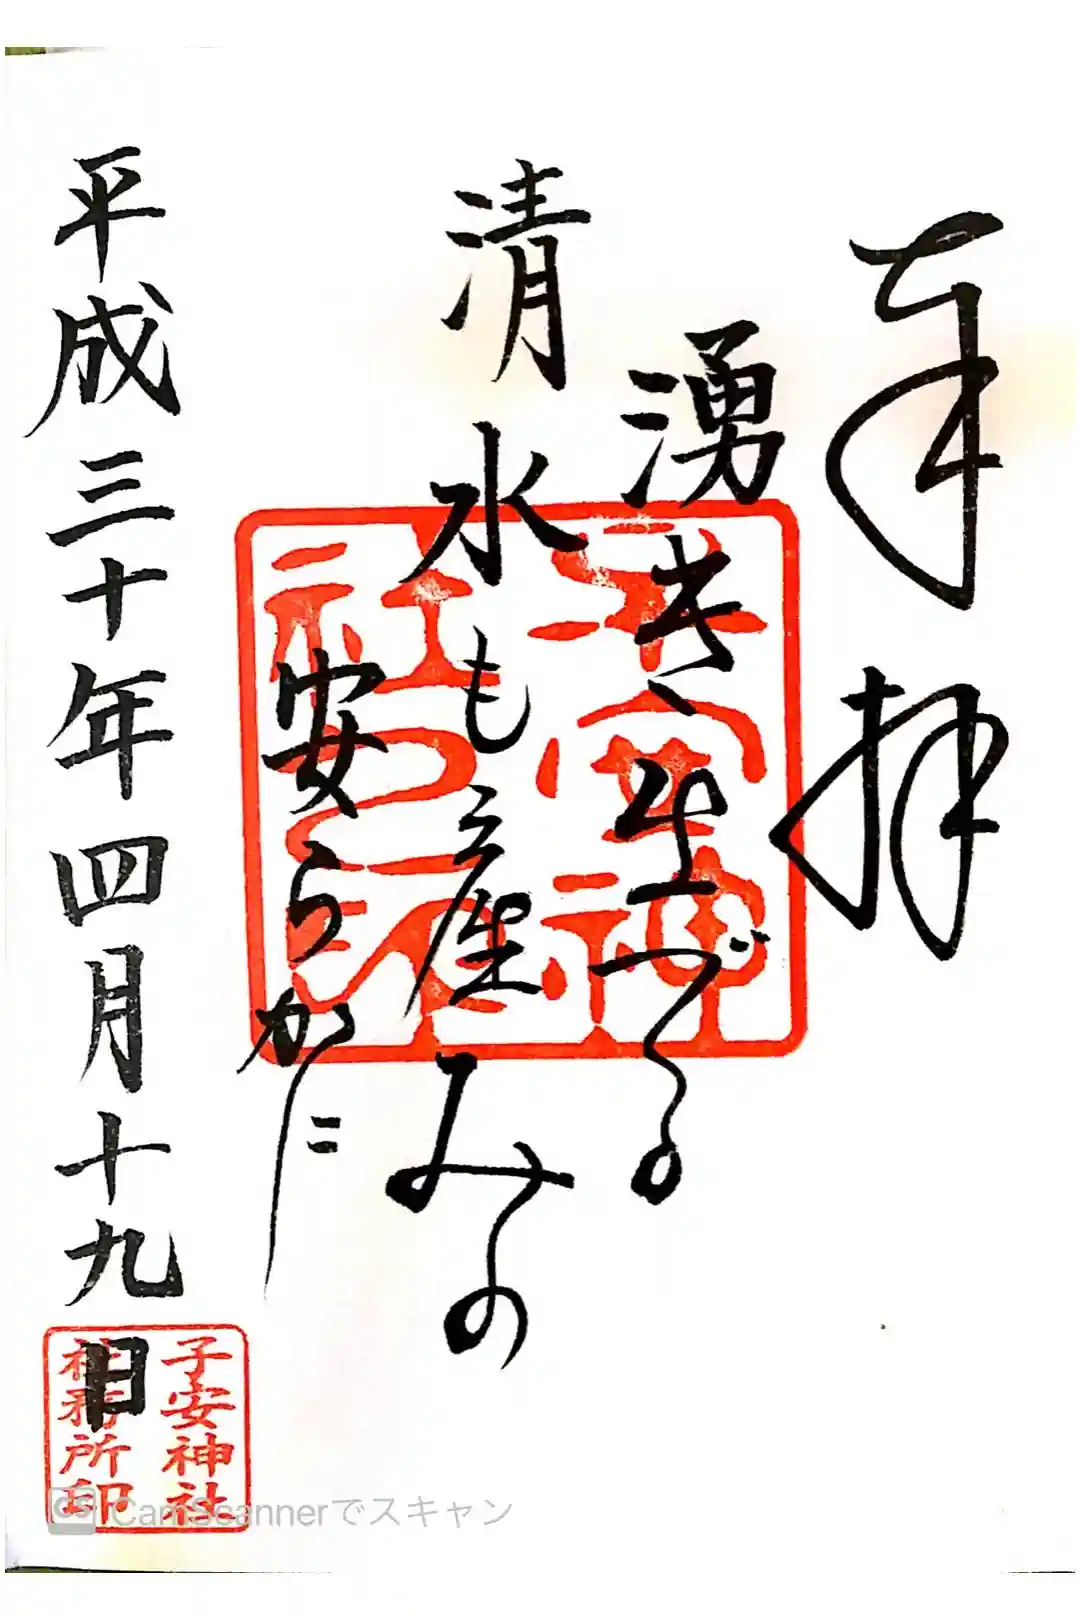 奉拝
湧き出づる
清水も産みの
安らかに
平成三十年四月十九日
子安神社
社務所印
CamScannerでスキャン